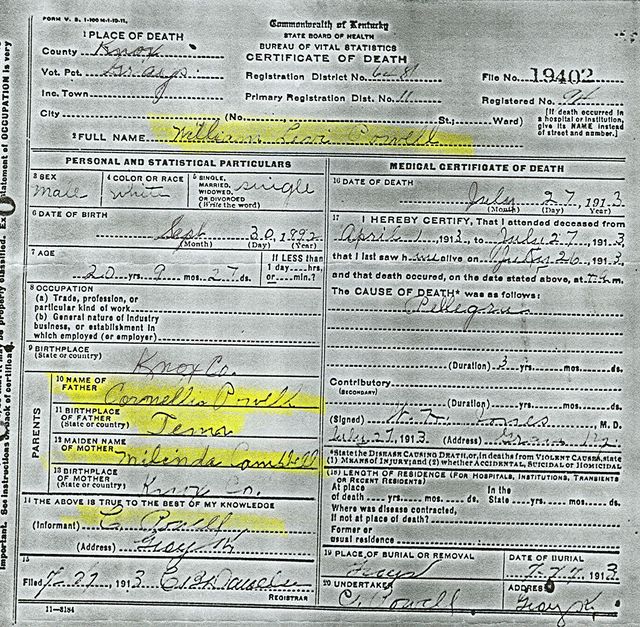 FORM V. S. 1-100M-1-19-11.
Commonwealth of Kentucky
STATE BOARD OF HEALTH
BUREAU OF VITAL STATISTICS
CERTIFICATE OF DEATH
1 PLACE OF DEATH
County Knox
Vot. Pct. Grays
Inc. Town
City (No. St.; Ward)
Registration District No.
File No. 19402
Primary Registration Dist. No. 11
Registered No.
[If death occurred in a hospital or institution, give its NAME instead of street and number.]
2 FULL NAME William Levi Powell
PERSONAL AND STATISTICAL PARTICULARS
3 SEX
male
4 COLOR OR RACE
white
5 SINGLE, MARRIED, WIDOWED, OR DIVORCED (Write the word)
single
6 DATE OF BIRTH
Sept 30, 1892
(Month) (Day) (Year)
7 AGE
20 yrs. 9 mos. 27 ds.
If LESS than 1 day....hrs. or....min.?
8 OCCUPATION
(a) Trade, profession, or particular kind of work
(b) General nature of industry business, or establishment in which employed (or employer)
9 BIRTHPLACE
(State or country)
Knox Co.
PARENTS
10 NAME OF FATHER
Cornellis Powell
11 BIRTHPLACE OF FATHER
(State or country)
Tenn
12 MAIDEN NAME OF MOTHER
Milinda
13 BIRTHPLACE OF MOTHER
(State or country)
Knox Co.
14 THE ABOVE IS TRUE TO THE BEST OF MY KNOWLEDGE
(Informant) C. Powell
(Address) Gray Ky
15
Filed 7-27, 1913
REGISTRAR
11-3184
MEDICAL CERTIFICATE OF DEATH
16 DATE OF DEATH
July 27, 1913
(Month) (Day) (Year)
17 I HEREBY CERTIFY, That I attended deceased from
April 1, 1913, to July 27, 1913,
that I last saw him alive on July 26, 1913,
and that death occured, on the date stated above, at m.
The CAUSE OF DEATH* was as follows:
Pellegra
(Duration) 3 yrs. mos. ds.
Contributory
(SECONDARY)
(Duration) yrs. mos. ds.
(Signed) Jones M. D.
July 27, 1913 (Address)
*State the DISEASE CAUSING DEATH, or, in deaths from VIOLENT CAUSES, state (1) MEANS OF INJURY; and (2) whether ACCIDENTAL, SUICIDAL or HOMICIDAL
18 LENGTH OF RESIDENCE (FOR HOSPITALS, INSTITUTIONS, TRANSIENTS OR RECENT RESIDENTS)
At place of death yrs. mos. ds. In the State yrs. mos. ds.
Where was disease contracted,
If not at place of death?
Former or usual residence
19 PLACE OF BURIAL OR REMOVAL
Grays
DATE OF BURIAL
1913
20 UNDERTAKER
C. Powell
ADDRESS
Gray Ky.